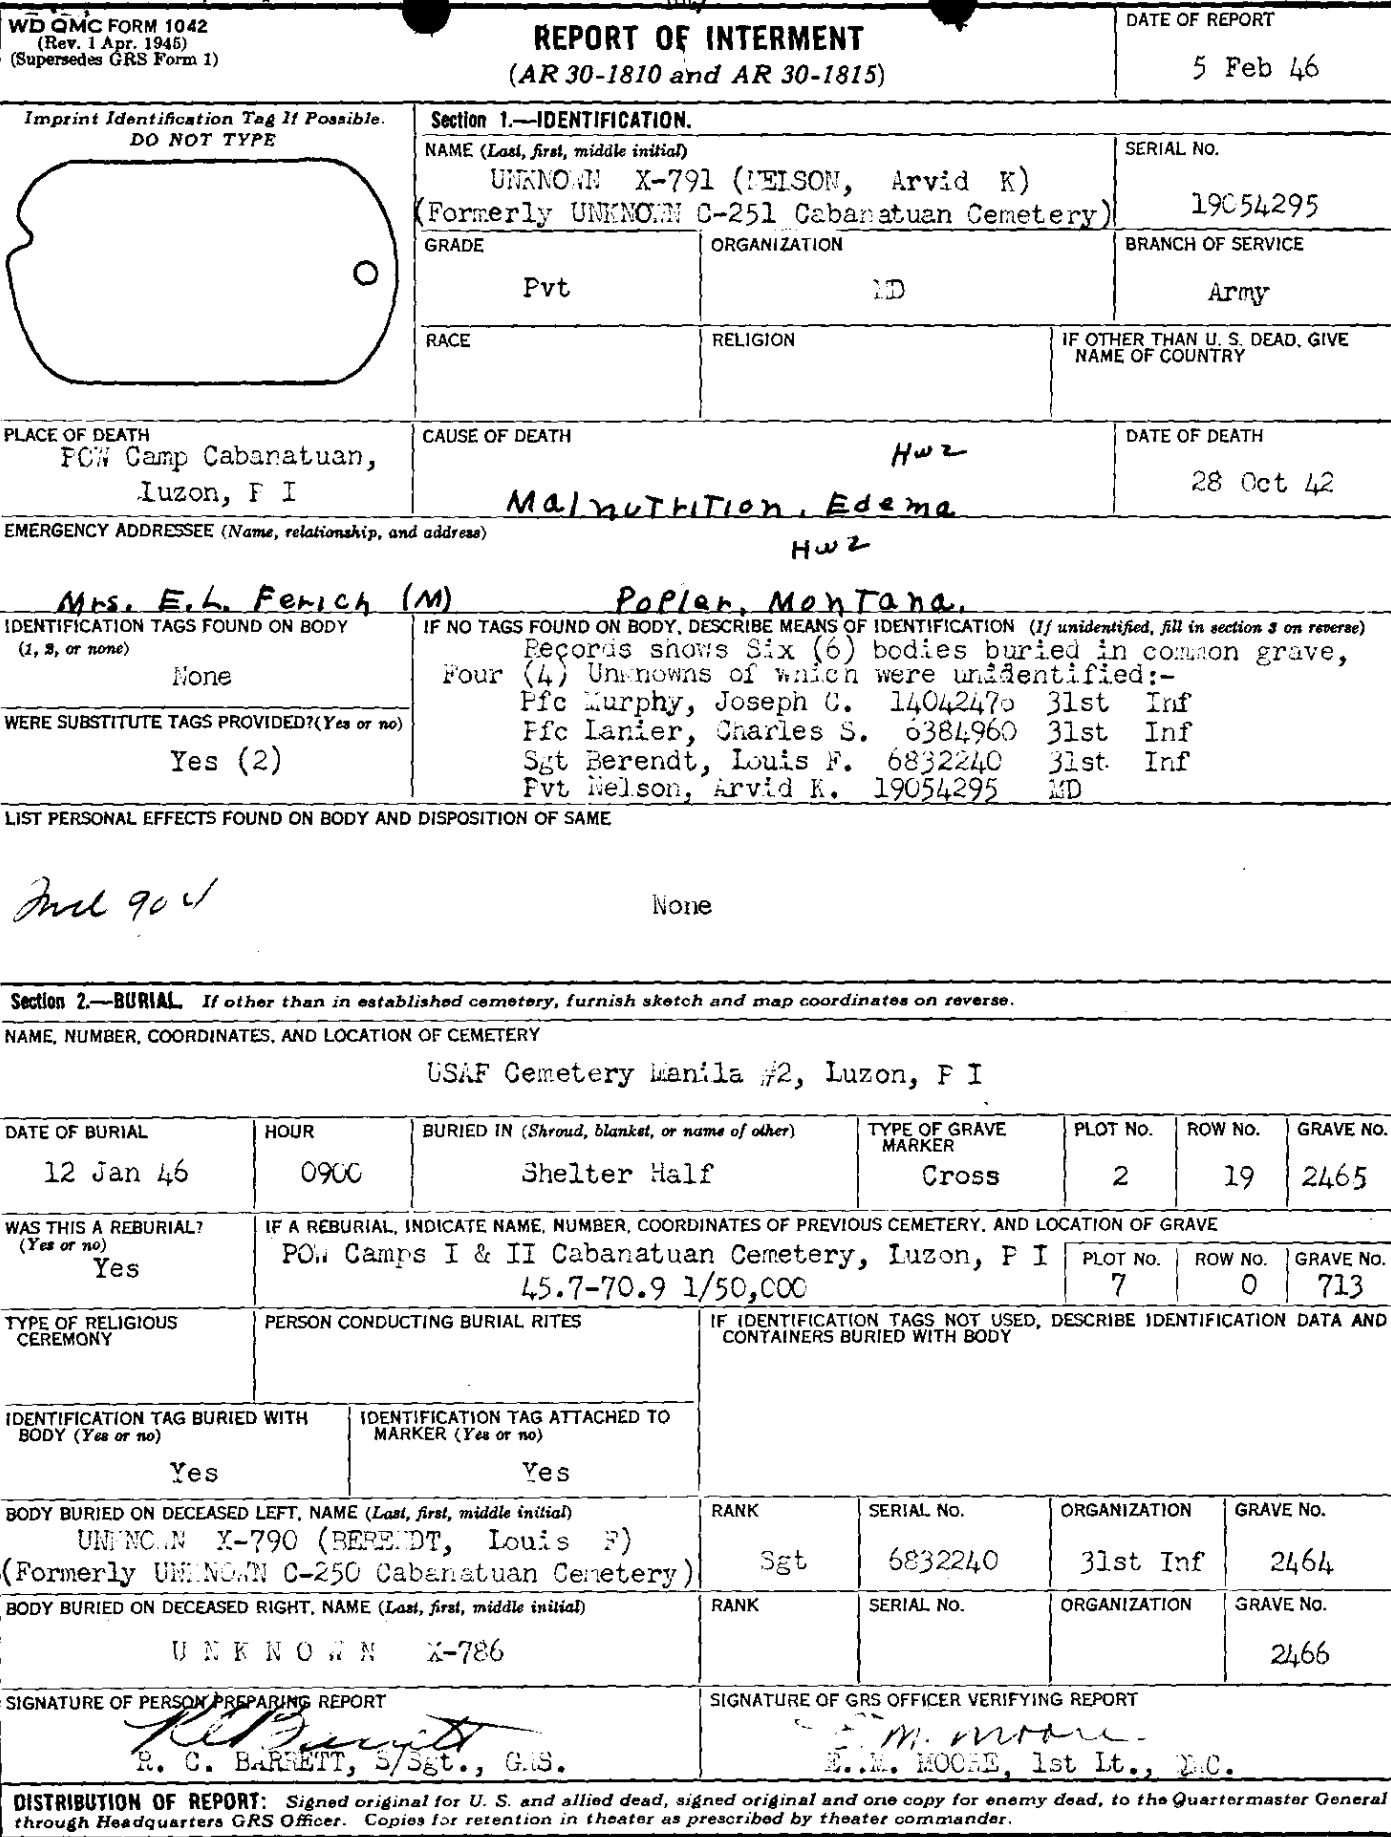 WD QMC FORM 1042
(Rev. 1 Apr. 1945)
(Supersedes GRS Form 1)
REPORT OF INTERMENT
(AR 30-1810 and AR 30-1815)
DATE OF REPORT
5 Feb 46
Imprint Identification Tag If Possible.
DO NOT TYPE
Section 1.—IDENTIFICATION.
NAME (Last, first, middle initial)
UNKNOWN X-791 (NELSON, Arvid K)
(Formerly UNKNOWN C-251 Cabanatuan Cemetery)
SERIAL NO.
19054295
GRADE
Pvt
ORGANIZATION
MD
BRANCH OF SERVICE
Army
RACE
RELIGION
IF OTHER THAN U. S. DEAD, GIVE
NAME OF COUNTRY
PLACE OF DEATH
POW Camp Cabanatuan,
Luzon, P I
CAUSE OF DEATH
HWZ
Malnutrition, Edema
DATE OF DEATH
28 Oct 42
EMERGENCY ADDRESSEE (Name, relationship, and address)
HWZ
Mrs. E.L. Ferich (M) Poplar, Montana.
IDENTIFICATION TAGS FOUND ON BODY
(1, 2, or none)
None
WERE SUBSTITUTE TAGS PROVIDED? (Yes or no)
Yes (2)
IF NO TAGS FOUND ON BODY, DESCRIBE MEANS OF IDENTIFICATION (If unidentified, fill in section 3 on reverse)
Records shows Six (6) bodies buried in common grave,
Four (4) Unknowns of which were unidentified:-
Pfc Murphy, Joseph C. 14042470 31st Inf
Pfc Lanier, Charles S. 6384960 31st Inf
Sgt Berendt, Louis F. 6832240 31st Inf
Pvt Nelson, Arvid K. 19054295 MD
LIST PERSONAL EFFECTS FOUND ON BODY AND DISPOSITION OF SAME
None
Section 2.—BURIAL. If other than in established cemetery, furnish sketch and map coordinates on reverse.
NAME, NUMBER, COORDINATES, AND LOCATION OF CEMETERY
USAF Cemetery Manila #2, Luzon, P I
DATE OF BURIAL
12 Jan 46
HOUR
0900
BURIED IN (Shroud, blanket, or name of other)
Shelter Half
TYPE OF GRAVE
MARKER
Cross
PLOT No.
2
ROW No.
19
GRAVE No.
2465
WAS THIS A REBURIAL?
(Yes or no)
Yes
IF A REBURIAL, INDICATE NAME, NUMBER, COORDINATES OF PREVIOUS CEMETERY, AND LOCATION OF GRAVE
POW Camps I & II Cabanatuan Cemetery, Luzon, P I
45.7-70.9 1/50,000
PLOT No.
7
ROW No.
0
GRAVE No.
713
TYPE OF RELIGIOUS
CEREMONY
PERSON CONDUCTING BURIAL RITES
IF IDENTIFICATION TAGS NOT USED, DESCRIBE IDENTIFICATION DATA AND
CONTAINERS BURIED WITH BODY
IDENTIFICATION TAG BURIED WITH
BODY (Yes or no)
Yes
IDENTIFICATION TAG ATTACHED TO
MARKER (Yes or no)
Yes
BODY BURIED ON DECEASED LEFT, NAME (Last, first, middle initial)
UNKNOWN X-790 (BERENDT, Louis F)
(Formerly UNKNOWN C-250 Cabanatuan Cemetery)
RANK
Sgt
SERIAL No.
6832240
ORGANIZATION
31st Inf
GRAVE No.
2464
BODY BURIED ON DECEASED RIGHT, NAME (Last, first, middle initial)
U N K N O W N X-786
RANK
SERIAL No.
ORGANIZATION
GRAVE No.
2466
SIGNATURE OF PERSON PREPARING REPORT
RC Barrett
R. C. BARRETT, S/Sgt., GRS.
SIGNATURE OF GRS OFFICER VERIFYING REPORT
E. M. Moore
E. M. MOORE, 1st Lt.,
DISTRIBUTION OF REPORT: Signed original for U. S. and allied dead, signed original and one copy for enemy dead, to the Quartermaster General
through Headquarters GRS Officer. Copies for retention in theater as prescribed by theater commander.